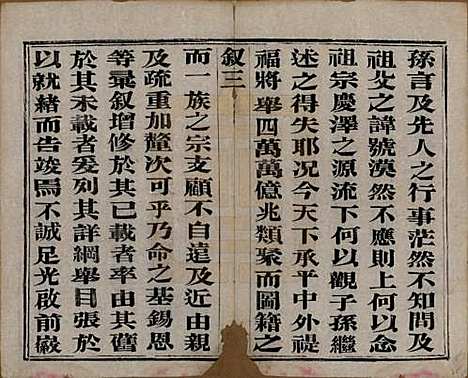 孫言及先人之行事茫然不知問及
祖父之諱號漠然不應則上何以念
祖宗慶澤之源流下何以觀子孫繼
述之得失耶况今天下承平中外禔
福將舉四萬萬億兆類聚而圖籍之
叙三
而一族之宗支顧不自遠及近由親
及疏重加釐次可乎乃命之基錫恩
等彙叙增修於其已載者率由其舊
於其未載者爰列其詳綱舉目張於
以就緒而告竣焉不誠足光啟前徽